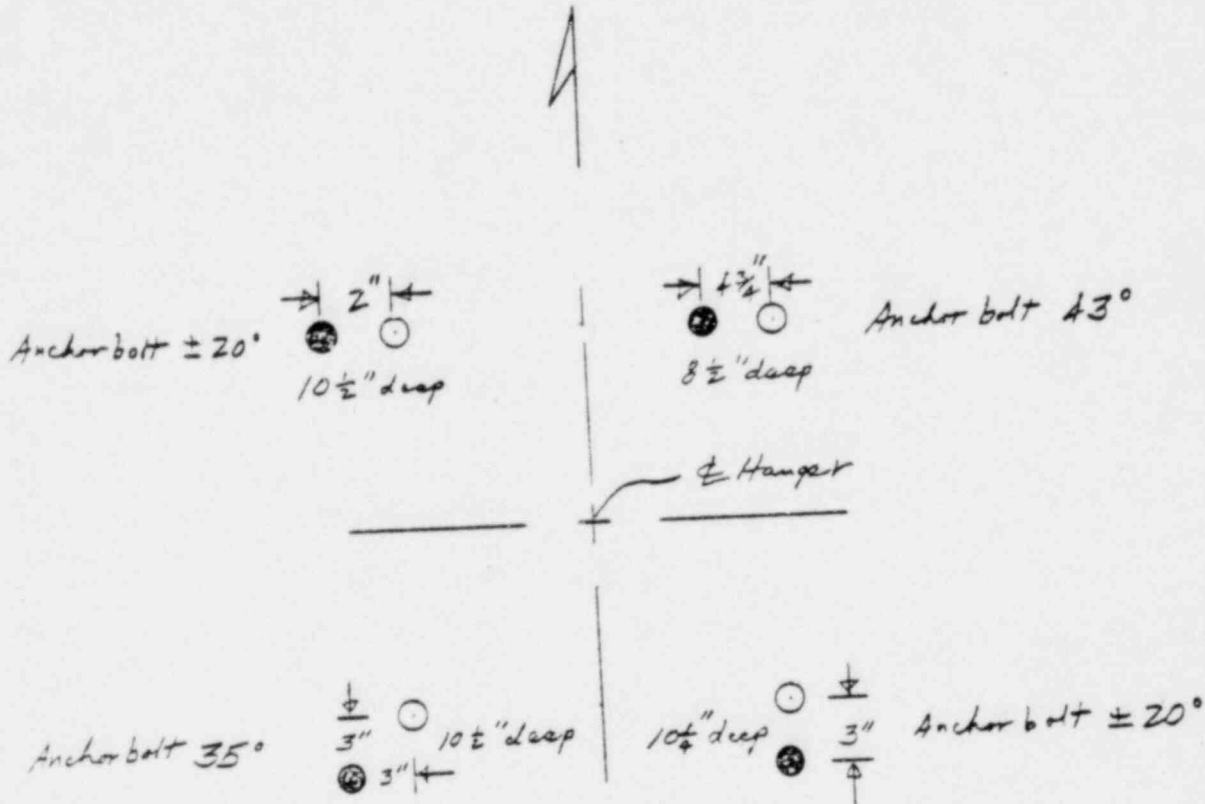 2"
Anchor bolt ± 20°
10 1/2" deep
3/4"
Anchor bolt 43°
8 1/2" deep
℄ Hanger
Anchor bolt 35°
3"
3"
10 1/2" deep
10 1/4" deep
3"
Anchor bolt ± 20°